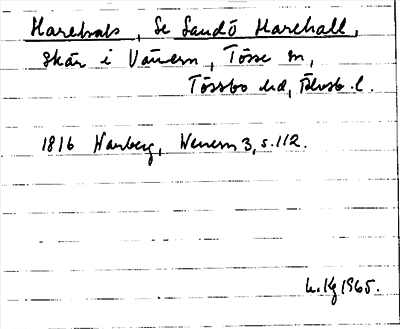 Harehals, Se Sandö Harehall,
skär i Vänern, Tösse sn,
Tössbo hd, Älvsb. l.
1816 Warberg, Wenern 3, s. 112.
L. Kg 1965.